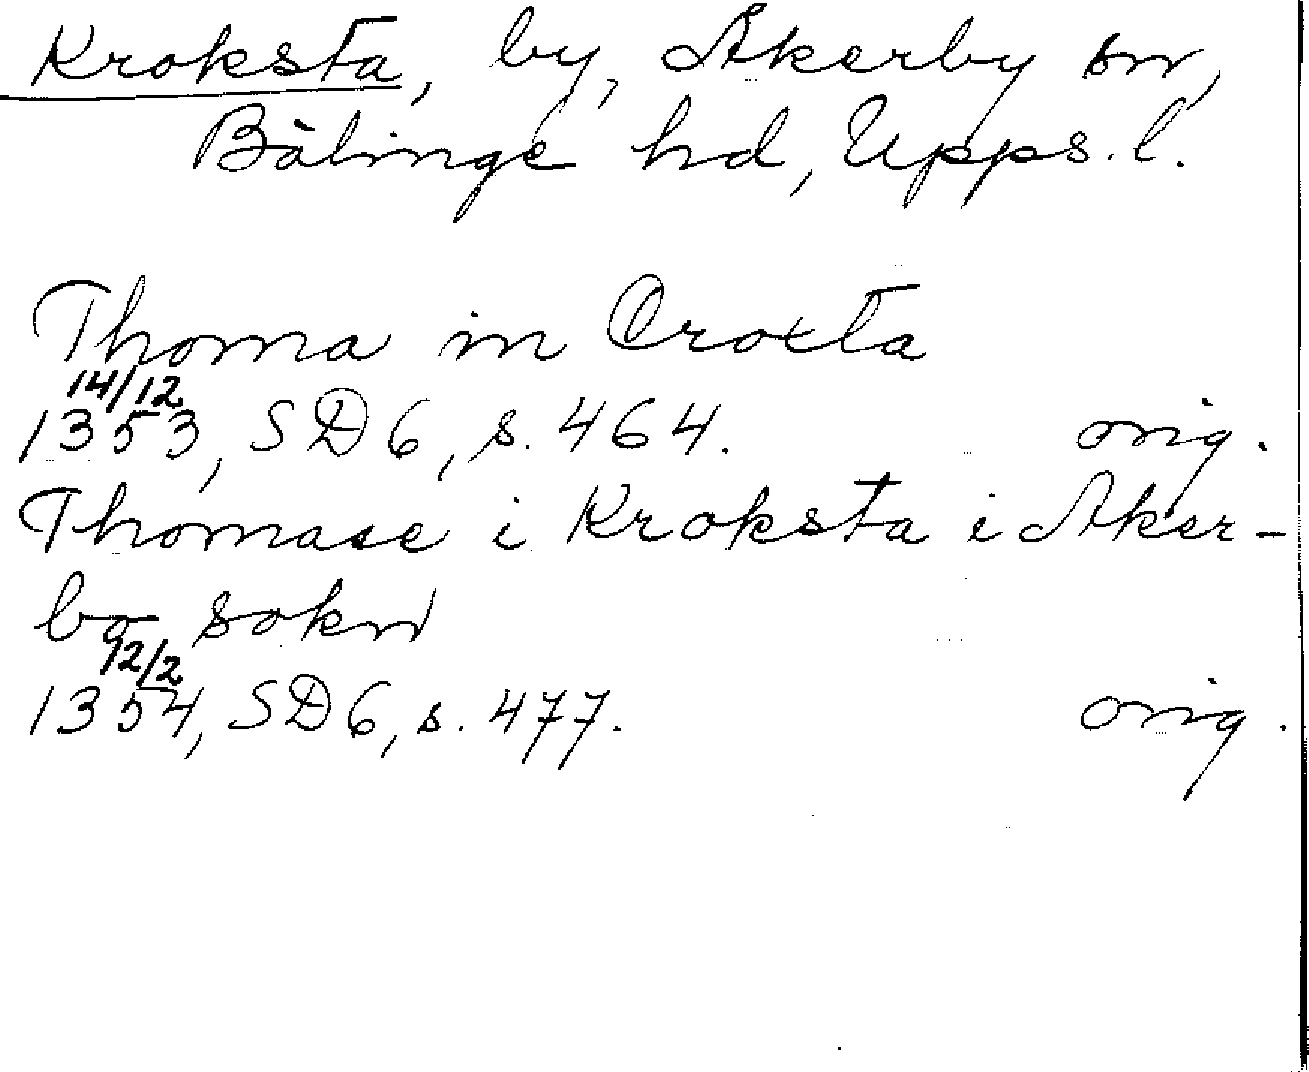 Kroksta, by, Åkerby sn,
Bälinge hd, Upps. l.
Thoma in Croxta
14/12
1353, SD 6, s. 464. orig.
Thomase i Kroksta i Aker-
bo sokn
12/2
1354, SD 6, s. 477. orig.